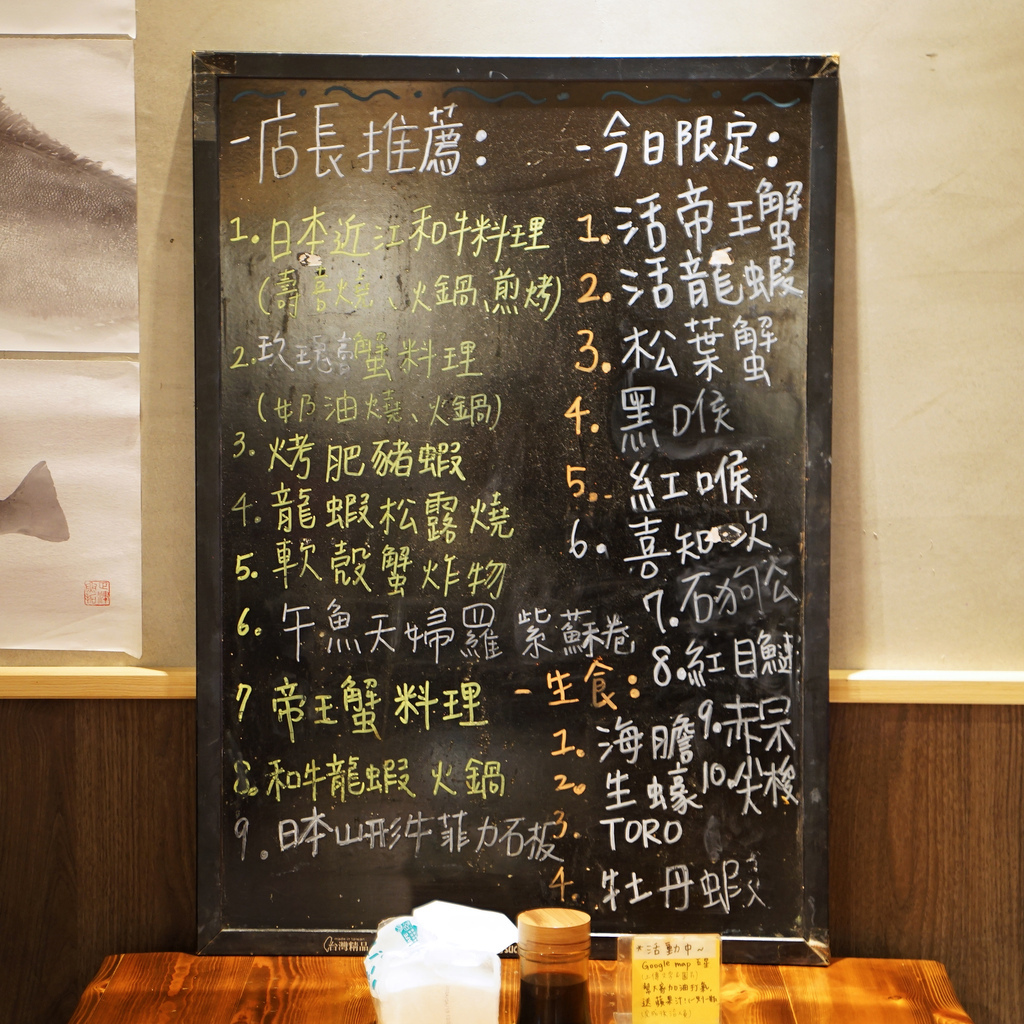 -店長推薦:
1.日本近江和牛料理
(壽喜燒、火鍋、煎烤)
2.玫瑰鹽蟹料理
(奶油燒、火鍋)
3.烤肥豬蝦
4.龍蝦松露燒
5.軟殼蟹炸物
6.午魚天婦羅 紫蘇卷
7 帝王蟹料理
8.和牛龍蝦 火鍋
9.日本山形牛菲力石板
-今日限定:
1.活帝王蟹
2.活龍蝦
3.松葉蟹
4.黑喉
5.紅喉
6.喜知次
7.石狗公
8.紅目鰱
9.赤宗
10.尖梭
-生食:
1.海膽
2.生蠔
3.TORO
4.牡丹蝦
台灣精品
*活動中~
Google map 五星